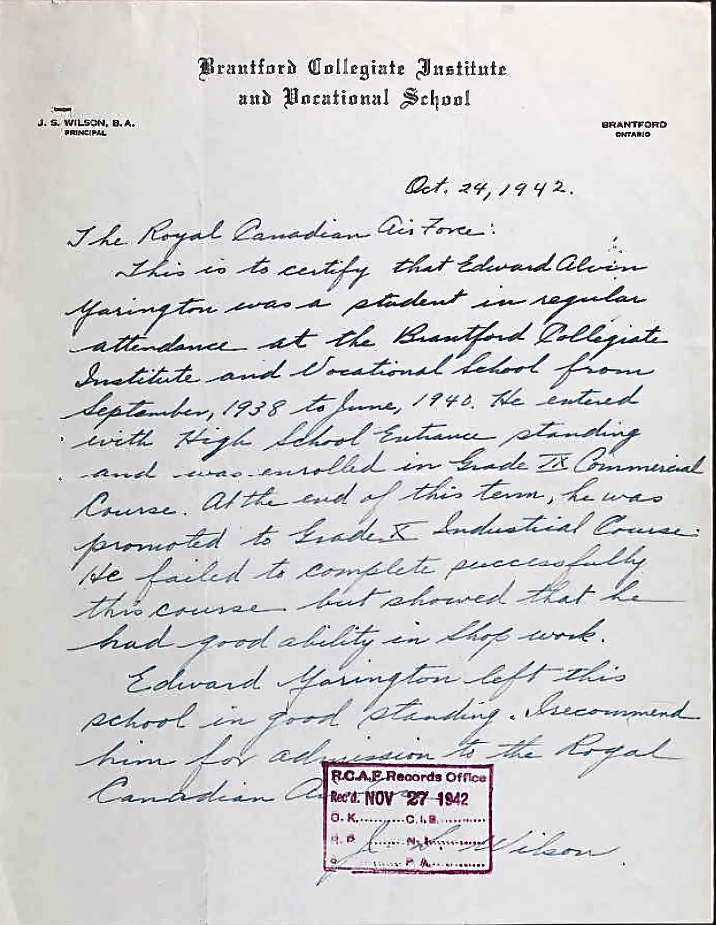 Brantford Collegiate Institute
and Vocational School
J. S. WILSON, B. A.
PRINCIPAL
BRANTFORD
ONTARIO
Oct. 24, 1942.
The Royal Canadian Air Force:
This is to certify that Edward Alvin
Yarington was a student in regular
attendance at the Brantford Collegiate
Institute and Vocational School from
September, 1938 to June, 1940. He entered
with High School Entrance standing
and was enrolled in Grade IX Commercial
Course. At the end of this term, he was
promoted to Grade X Industrial Course.
He failed to complete successfully
this course but showed that he
had good ability in Shop work.
Edward Yarington left this
school in good standing. I recommend
him for admission to the Royal
Canadian
R.C.A.F. Records Office
Rec'd. NOV 27 1942
O. K. C. I. B.
P. A.
J. S. Wilson.